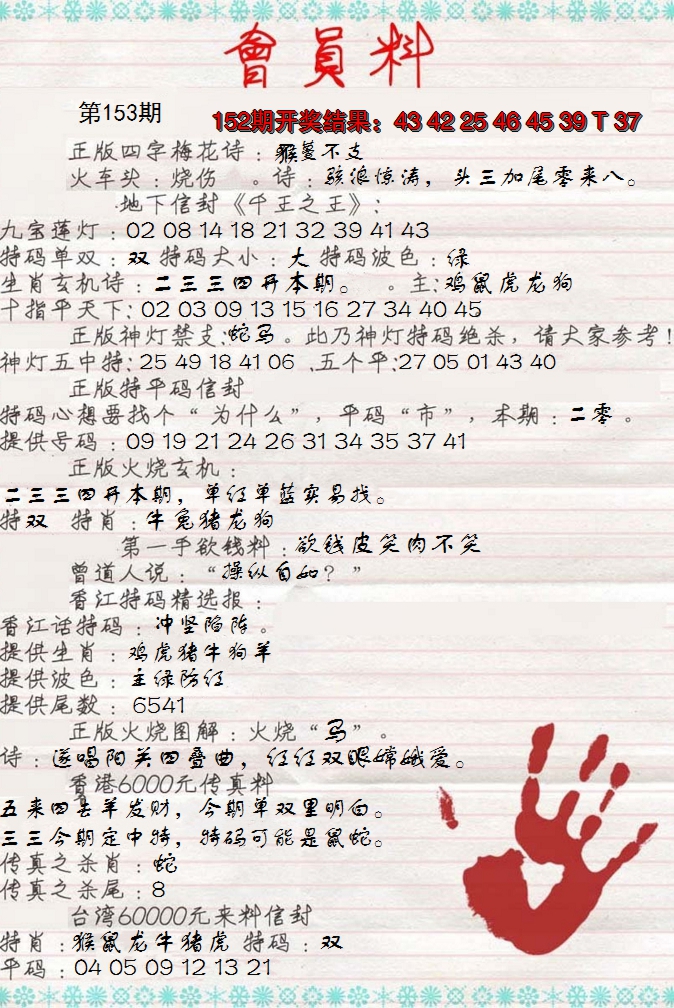 會員料
第153期
152期开奖结果：43 42 25 46 45 39 T 37
正版四字梅花诗：猴蔓不支
火车头：烧伤 。诗：骇浪惊涛，头三加尾零来八。
地下信封《千王之王》：
九宝莲灯：02 08 14 18 21 32 39 41 43
特码单双：双 特码大小：大 特码波色：绿
生肖玄机诗：二三三四开本期。 。主：鸡鼠虎龙狗
十指平天下：02 03 09 13 15 16 27 34 40 45
正版神灯禁支：蛇马。此乃神灯特码绝杀，请大家参考！
神灯五中特：25 49 18 41 06 .五个平：27 05 01 43 40
正版特平码信封
特码心想要找个“为什么”，平码“市”，本期：二零。
提供号码：09 19 21 24 26 31 34 35 37 41
正版火烧玄机：
二三三四开本期，单红单蓝实易找。
特双 特肖：牛兔猪龙狗
第一手欲钱料：欲钱皮笑肉不笑
曾道人说：“操纵自如？”
香江特码精选报：
香江话特码：冲坚陷阵。
提供生肖：鸡虎猪牛狗羊
提供波色：主绿防红
提供尾数：6541
正版火烧图解：火烧“马”。
诗：遂唱阳关四叠曲，红红双眼嫦娥爱。
香港6000元传真料
五来四去羊发财，今期单双里明白。
三三今期定中特，特码可能是鼠蛇。
传真之杀肖：蛇
传真之杀尾：8
台湾60000元来料信封
特肖：猴鼠龙牛猪虎 特码：双
平码：04 05 09 12 13 21